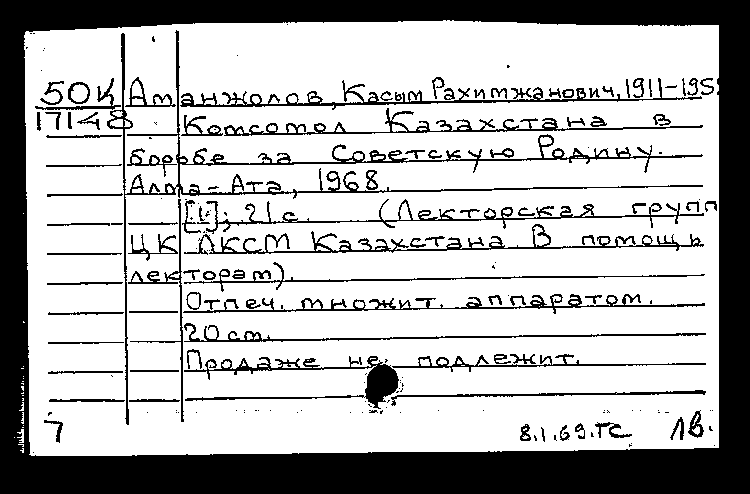 50К Аманжолов, Касым Рахимжанович, 1911-195
17148 Комсомол Казахстана в
борьбе за Советскую Родину.
Алма-Ата, 1968.
21 с. (Лекторская групп
ЦК ЛКСМ Казахстана В помощь
лекторам).
Отпеч. множит. аппаратом.
20 см.
Продаже не подлежит.
7 8.1.69.ГС 1в.